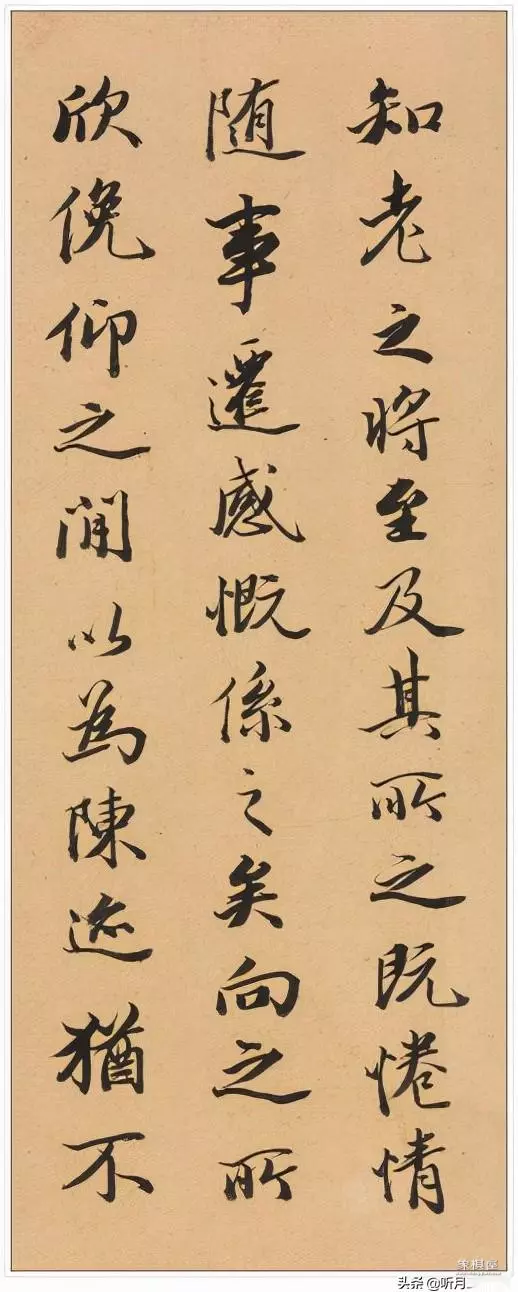 知老之将至及其所之既惓情
随事遷感慨係之矣向之所
欣俛仰之間以為陳迹猶不
头条@听月_